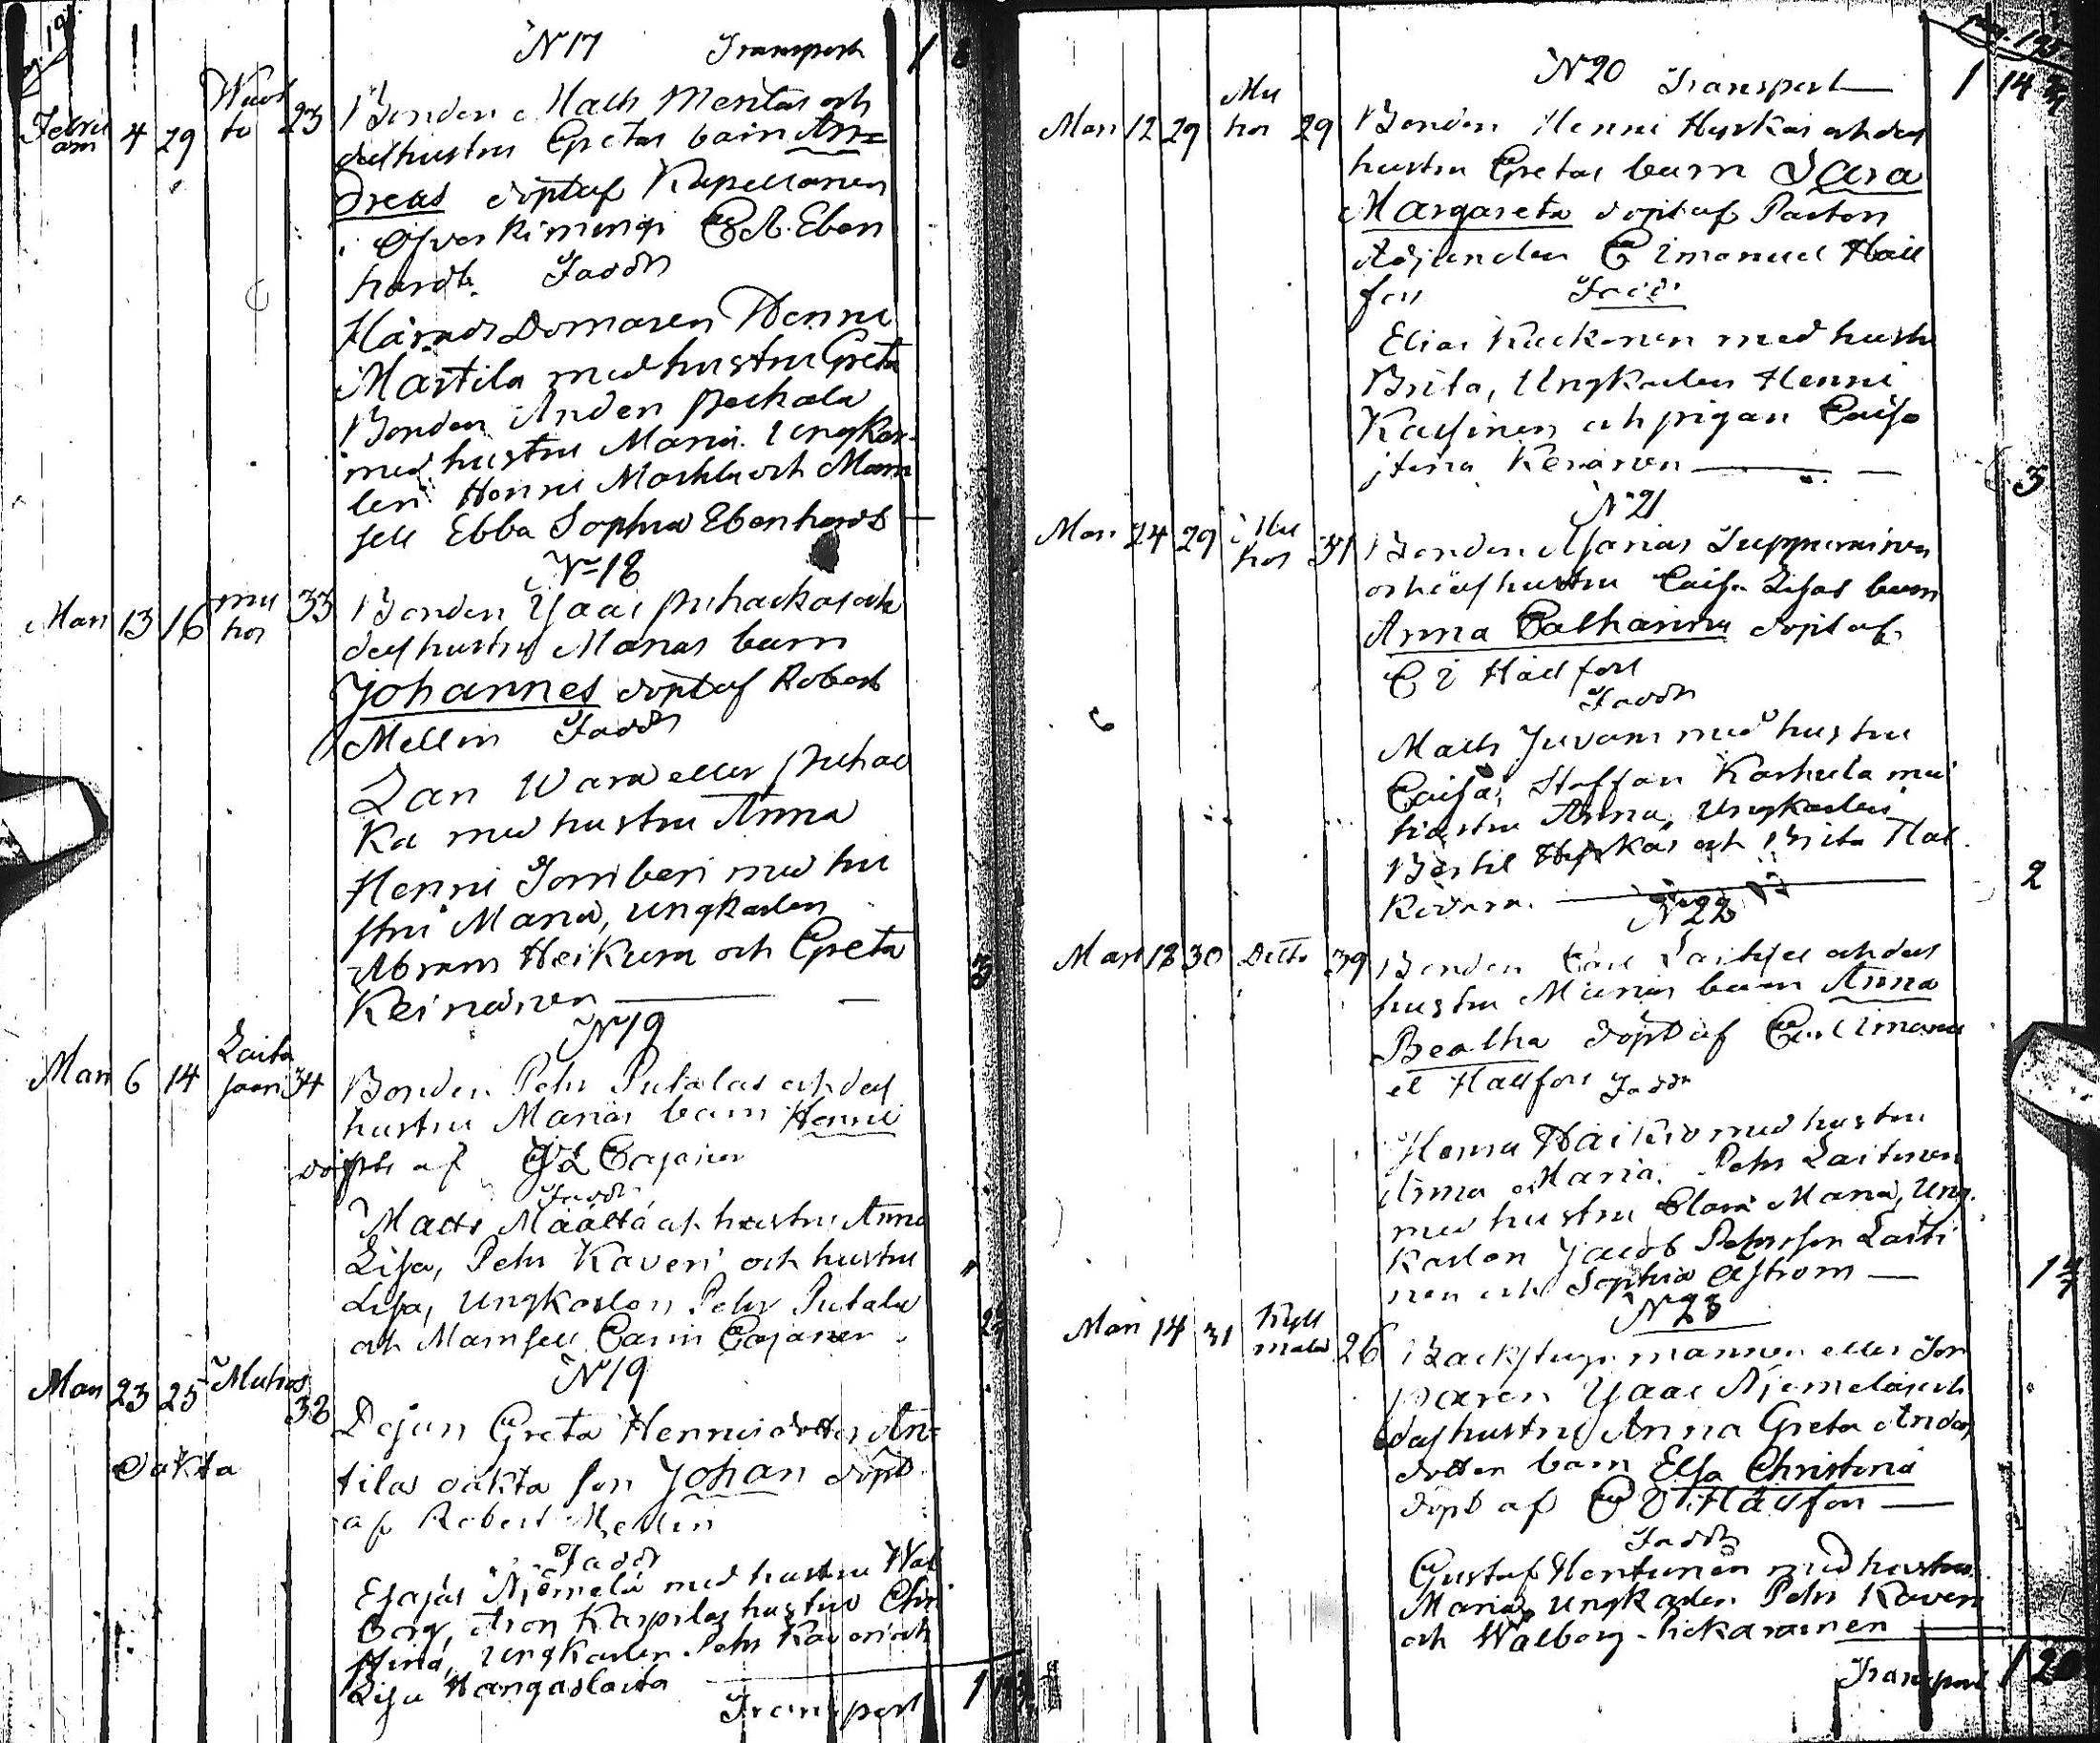 N 17 Transport 1 8
Februarii 4 29 Wuotto 23 Bonden Math Mentas och
dess hustru Gretas barn An=
dreas döpt af Kapellanen
i Öfver Kimingi C A. Eben
hardt. Fadd
Härads Domaren Henric
Martila med hustru Greta
Bonden Anders
med hustru Maria. Ungkar-
len Henric och Mam
sell Ebba Sophia Ebenhardt
N 18
Mars 13 16 Muhos 33 Bonden Isaac och
dess hustru Marias barn
Johannes döpt af Robert
Mellin Fadd
Lars Wara eller Puhac
ka med hustru Anna
Henric med hu
stru Maria, ungkarlen
Abram Heikura och Greta
Keinänen 3
N 19
Mars 6 14 Laitasaari 34 Bonden Pehr Putalas och dess
hustru Marias barn Henric
döpts af Cajaner
Fadd
Matts Määttä och hustru Anna
Lisa, Pehr Kaveri och hustru
Lisa, ungkarlen Pehr Putala
och Mamsell Carin Cajaner
N 19
Mars 23 25 Muhos 38 Pigan Greta Henricsdotter An=
oäkta
tilas oäkta son Johan döpt
af Robert Mellin
Fadd
Esajas Njemelä med hustru Wal
borg, Aron Karpilas hustru Chri
stina, Ungkarlen Pehr Kaveri och
Lisa Hangaslaita
Transport 1
pag. 195.
N 20 Transport 1 14
Mars 12 29 Muhos 29 Bonden Henric Hyrkäs och dess
hustru Gretas barn Sara
Margareta döpt af Pastors
Adjuncten C Emanuel Häll
fors Fadd
Elias Kuckonen med hustru
Brita, Ungkarlen Henric
Kassinen och pigan Caisa
stina Keränen 3
N 21
Mars 24 29 Muhos 31 Bonden Esaias Suppurainen
och dess hustru Caisa Lisas barn
Anna Catharina döpt af
C E Hällfors
Fadd
Matts Juvani med hustru
Caisa, Staffan Karhula med
hustru Anna, Ungkarlen
Bertil Hyrkäs och Brita
2
N 22
Mars 18 30 Ditto 39 Bonden och dess
hustru Marias barn Anna
Beatha döpt af Carl Emanu
el Hällfors Fadd
Henric med hustru
Anna Maria, Pehr Laitinen
med hustru Clara Maria, Ung
karlen Jacob Pehrsson Laiti
nen och Sophia
N 23
Mars 14 31 Kyllmälä 26 Backstugu mannen eller Tor
paren Isaac Njemeläs och
dess hustru Anna Greta Anders
dotter barn Elsa Christina
döpt af C E Hällfors
Fadd
Gustaf Hentunen med hustru
Maria, ungkarlen Pehr Kaveri
och Walborg
Transport 1 20